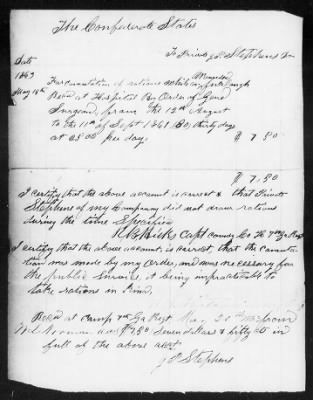 The Confederate States
To Private J P Stephens Dr
Date
1863
May 18th For Commutation of rations while on furlough Wounded
Recd at Hospital By Order of Genl
Surgeon, from the 12th August
to the 11th of Sept 1861 30, thirty days
at 25 00 per day. $ 7.50
$ 7.50
I certify that the above account is correct & that Private
Stephens of my Company did not draw rations
during the time Specified
Capt Comdg Co 7th Ga Regt
I certify that the above account is correct, that the Commuta-
tion was made by my Order, and was necessary for
the public Service, it being impracticable to
take rations in Kind.
Recd at Camp 7th Ga Regt May 21st 1863 from
$7.50 Seven dollars & fifty cts in
full of the above acct.
J P Stephens